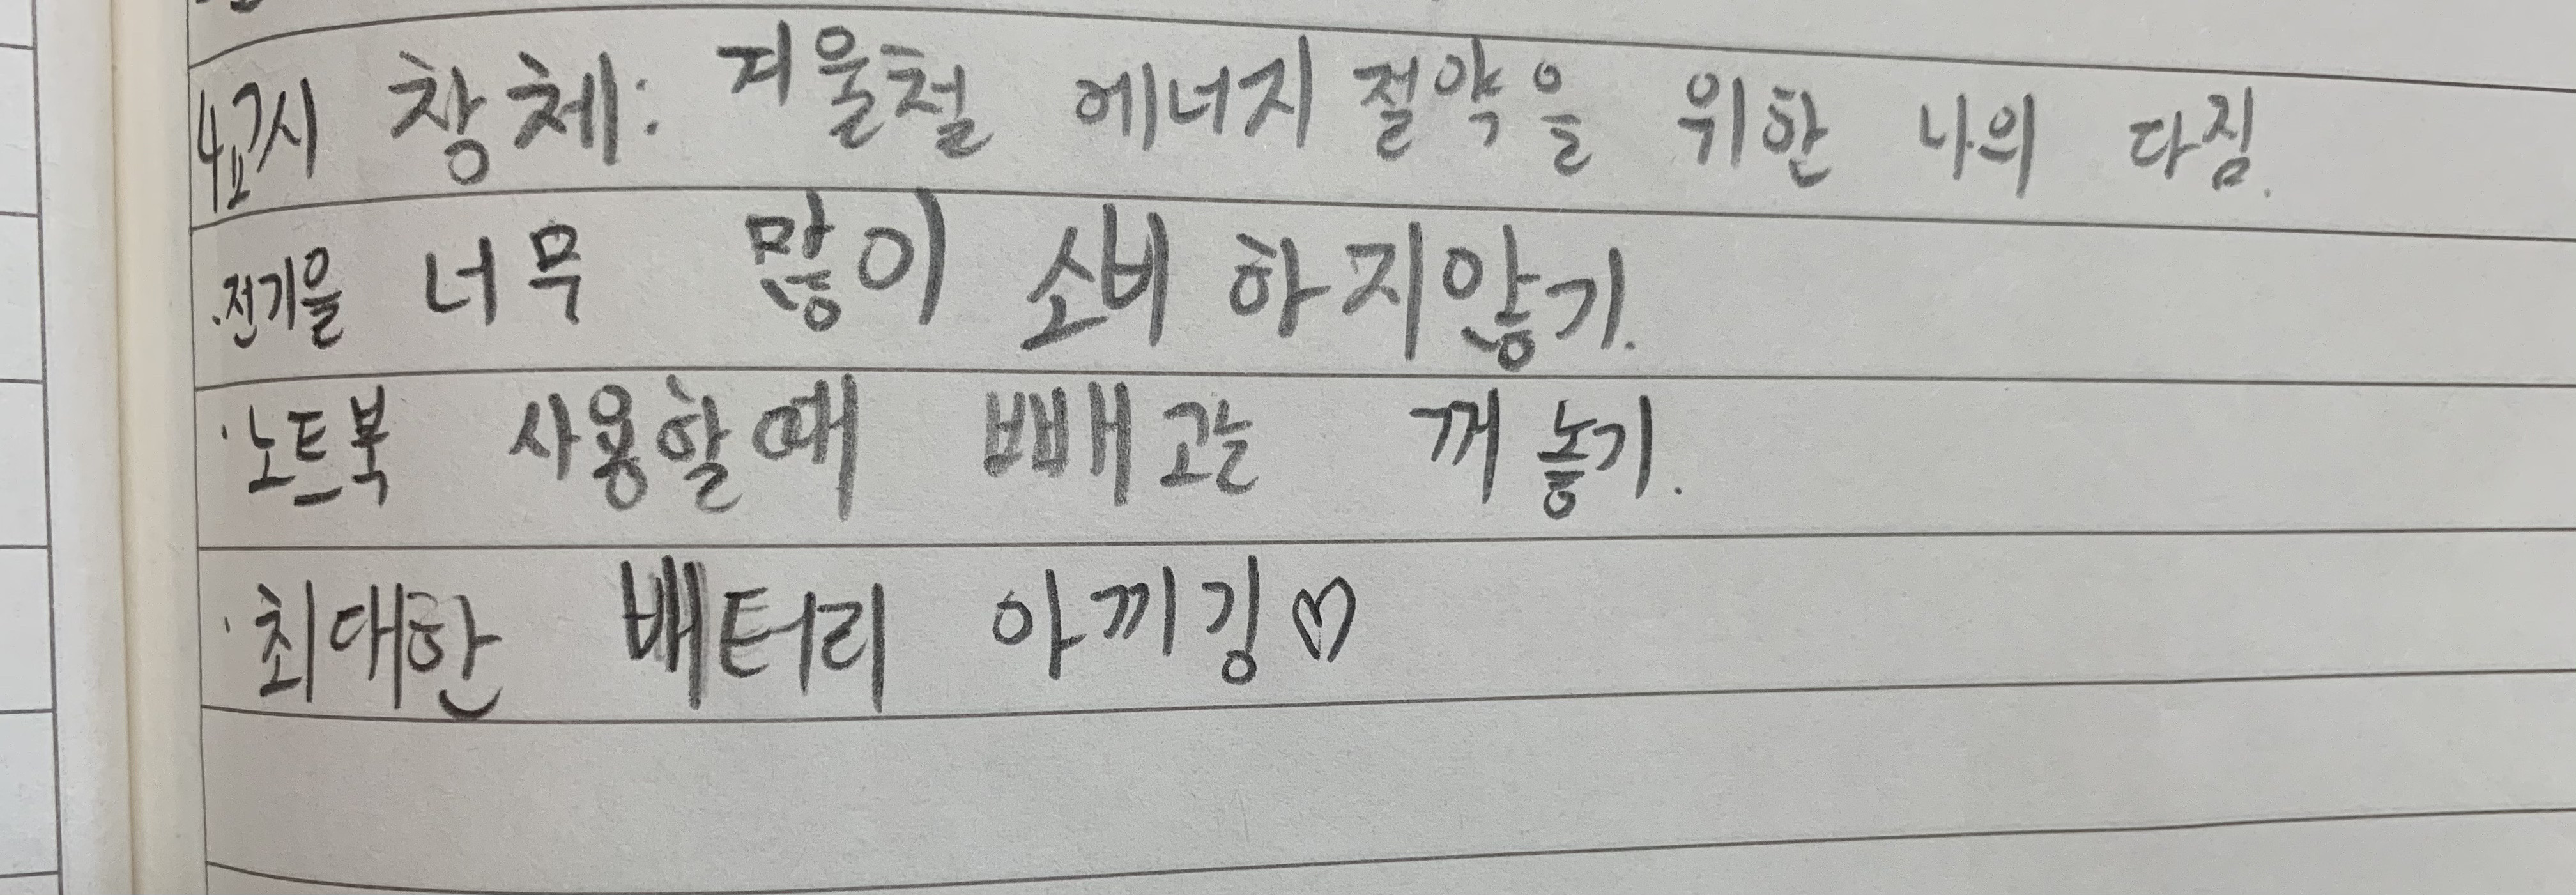 4교시 창체: 겨울철 에너지 절약을 위한 나의 다짐.
.전기을 너무 많이 소비 하지않기.
·노트북 사용할때 빼고는 꺼 놓기.
·최대한 배터리 아끼깅♡